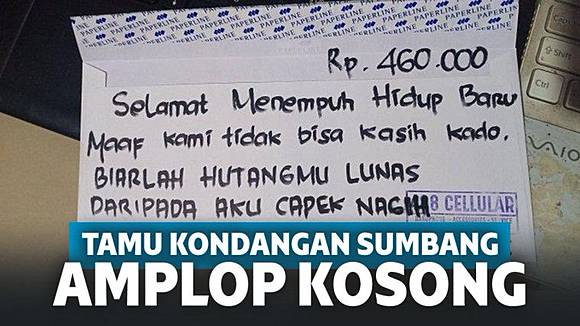 PAPERLINE PAPERLINE PAPERLINE PAPERLINE PAPERLINE
Rp. 460.000
Selamat Menempuh Hidup Baru
Maaf kami tidak bisa kasih kado.
BIARLAH HUTANGMU LUNAS
DARIPADA AKU CAPEK NAGIH
8 CELLULAR
Ctrl
Shift
VAIO
TAMU KONDANGAN SUMBANG
AMPLOP KOSONG